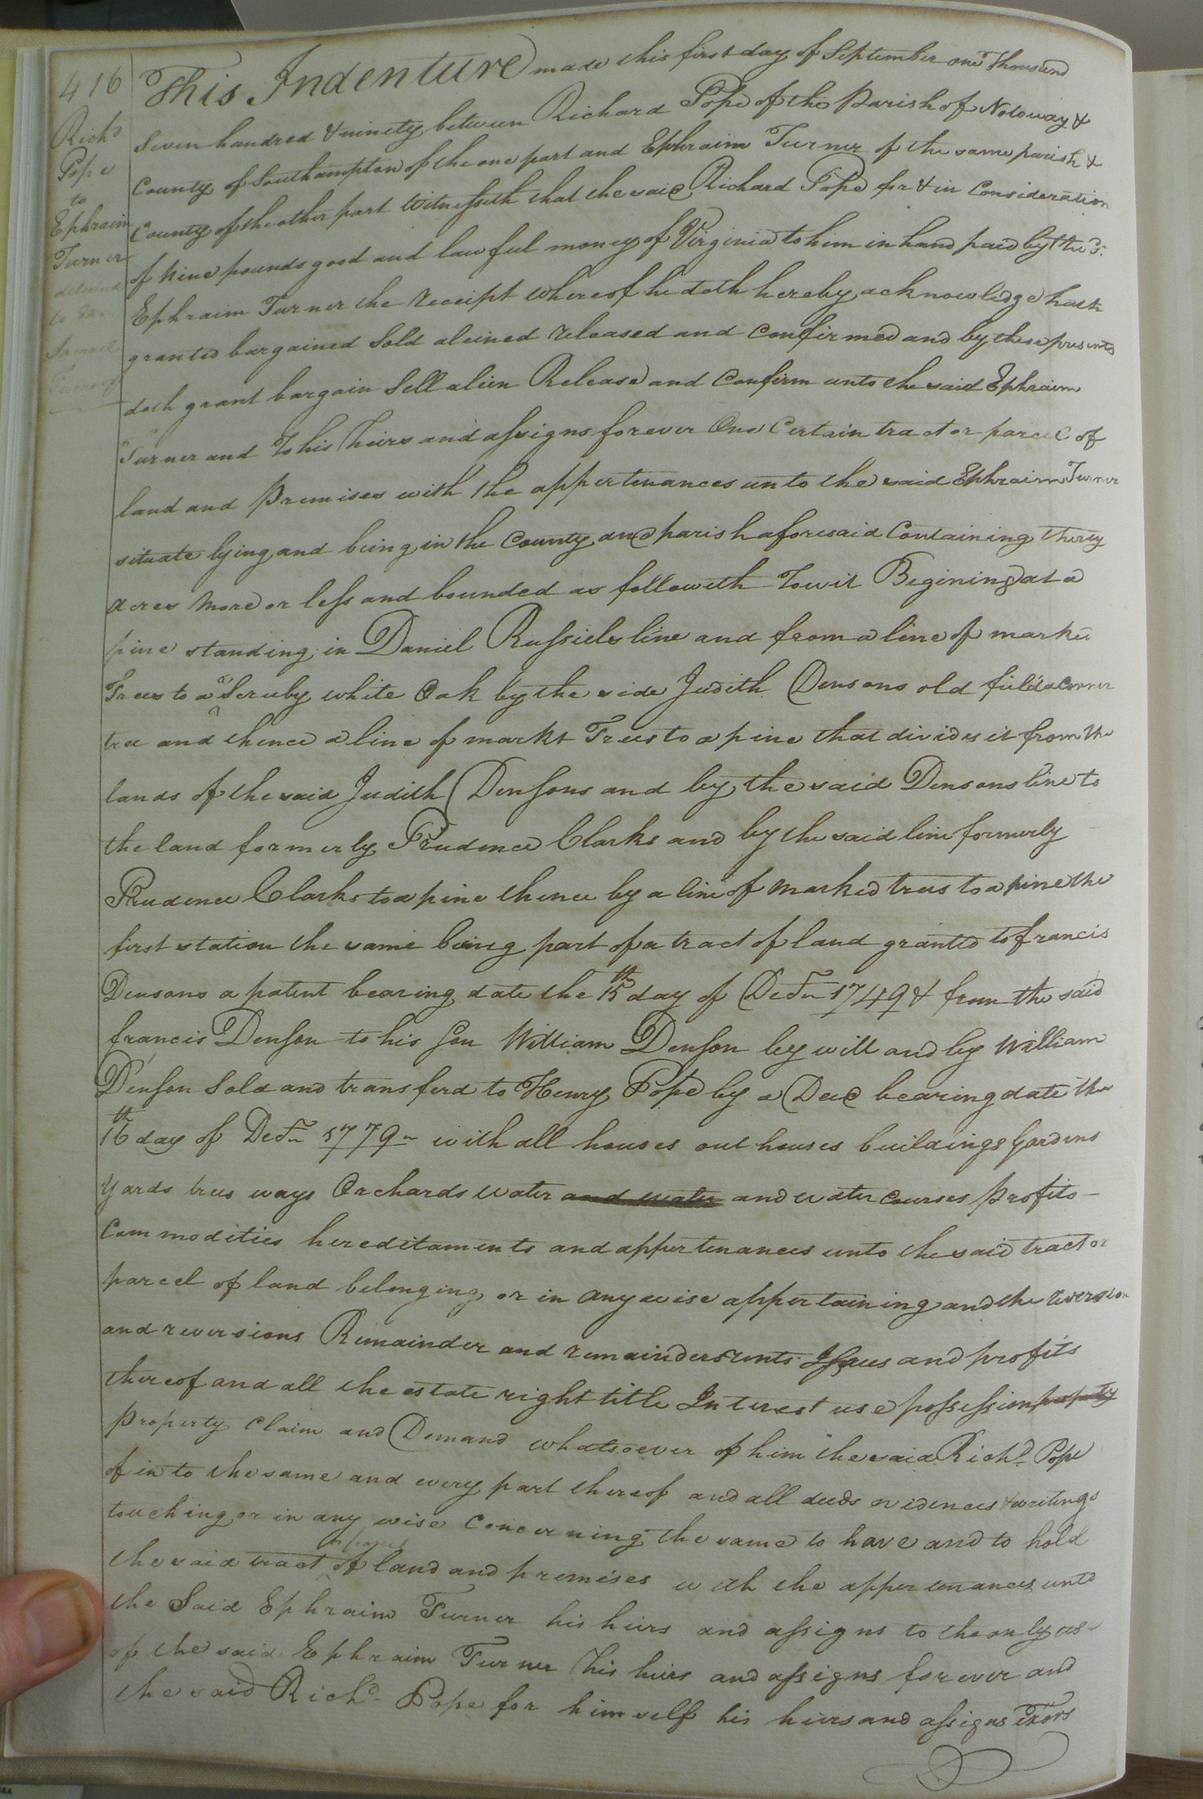 416
Richd
Pope
to
Ephraim
Turner
This Indenture made this first day of September one Thousand
Seven hundred & ninety between Richard Pope of the Parish of Notoway &
County of Southampton of the one part and Ephraim Turner of the same parish &
County of the other part Witnesseth that the said Richard Pope for & in Consideration
of Nine pounds good and lawful money of Virginia to him in hand paid by the sd.
Ephraim Turner the receipt whereof he doth hereby acknowledge hath
granted bargained Sold aleined released and confirmed and by these presents
doth grant bargain Sell alien Release and Confirm unto the said Ephraim
Turner and To his heirs and assigns forever One Certain tract or parcel of
land and Premises with the appertenances unto the said Ephraim Turner
situate lying and being in the County and parish aforesaid Containing thirty
acres more or less and bounded as followith Towit Begining at a
pine standing in Daniel Russiels line and from a line of market
Trees to a Scruby white Oak by the side Judith Densons old field a Corner
tree and thence a line of markt Trees to a pine that divides it from the
lands of the said Judith Densons and by the said Densons line to
the land formerly Prudence Clarks and by the said line formerly
Prudence Clarks to a pine thence by a line of marked trees to a pine the
first station the same being part of a tract of land granted to francis
Densons a patent bearing date the 15th day of Decr 1749 & from the said
francis Denson to his Son William Denson by will and by William
Denson Sold and transferd to Henry Pope by a Deed bearing date the
16th day of Decr 1779 with all houses out houses buildings Gardens
Yards trees ways Orchards water and water and water Courses profits
Commodities hereditaments and appertenances unto the said tract or
parcel of land belonging or in any wise appertaining and the reversion
and reversions Remainder and remainders rents Issues and profits
thereof and all the estate right title Interest use possession property
Property Claim and Demand whatsoever of him the said Richd. Pope
of in to the same and every part thereof and all deeds evidences & writings
touching or in any wise concerning the same to have and to hold
the said tract of land and premises with the appertenances unto
the Said Ephraim Turner his heirs and assigns to the only use
of the said Ephraim Turner his heirs and assigns forever and
the said Richd. Pope for himself his heirs and assigns Exors